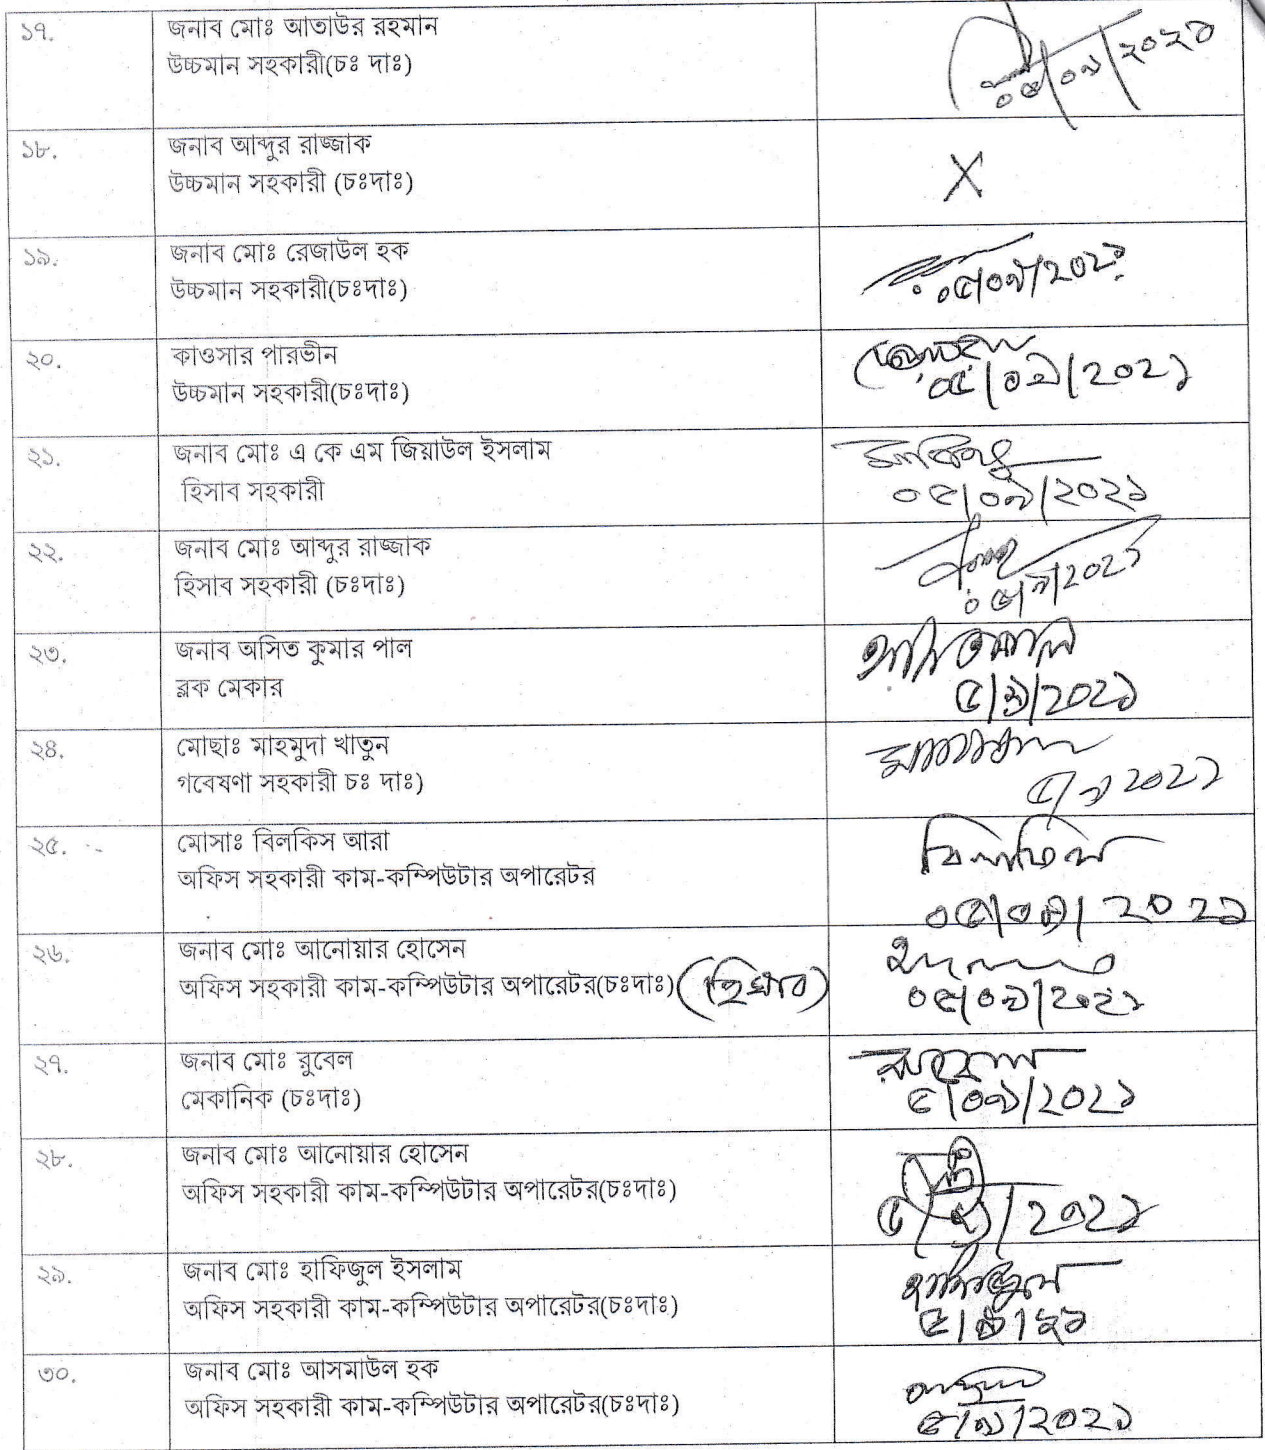 ১৭.
জনাব মোঃ আতাউর রহমান
উচ্চমান সহকারী(চঃ দাঃ)
০৫/০৯/২০২১
১৮.
জনাব আব্দুর রাজ্জাক
উচ্চমান সহকারী (চঃদাঃ)
X
১৯.
জনাব মোঃ রেজাউল হক
উচ্চমান সহকারী(চঃদাঃ)
০৫/০৯/২০২১
২০.
কাওসার পারভীন
উচ্চমান সহকারী(চঃদাঃ)
০৫/০৯/২০২১
২১.
জনাব মোঃ এ কে এম জিয়াউল ইসলাম
হিসাব সহকারী
০৫/০৯/২০২১
২২.
জনাব মোঃ আব্দুর রাজ্জাক
হিসাব সহকারী (চঃদাঃ)
০৫/৯/২০২১
২৩.
জনাব অসিত কুমার পাল
ব্লক মেকার
৫/৯/২০২১
২৪.
মোছাঃ মাহমুদা খাতুন
গবেষণা সহকারী চঃ দাঃ)
৫/৯ ২০২১
২৫.
মোসাঃ বিলকিস আরা
অফিস সহকারী কাম-কম্পিউটার অপারেটর
বিলকিস
০৫/০৯/২০২১
২৬.
জনাব মোঃ আনোয়ার হোসেন
অফিস সহকারী কাম-কম্পিউটার অপারেটর(চঃদাঃ) (হিসাব)
০৫/০৯/২০২১
২৭.
জনাব মোঃ রুবেল
মেকানিক (চঃদাঃ)
৫/০৯/২০২১
২৮.
জনাব মোঃ আনোয়ার হোসেন
অফিস সহকারী কাম-কম্পিউটার অপারেটর(চঃদাঃ)
৫/৯/২০২১
২৯.
জনাব মোঃ হাফিজুল ইসলাম
অফিস সহকারী কাম-কম্পিউটার অপারেটর(চঃদাঃ)
হাফিজুল
৫/৯/২১
৩০.
জনাব মোঃ আসমাউল হক
অফিস সহকারী কাম-কম্পিউটার অপারেটর(চঃদাঃ)
৫/৯/২০২১